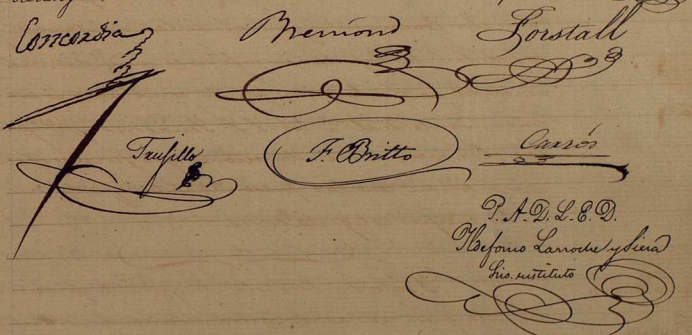 Concordia
Bremond
Forstall
Trujillo
F. Britto
P. A. D. L. E. D.
Ildefonso Larroche y Siera
Srio. sustituto